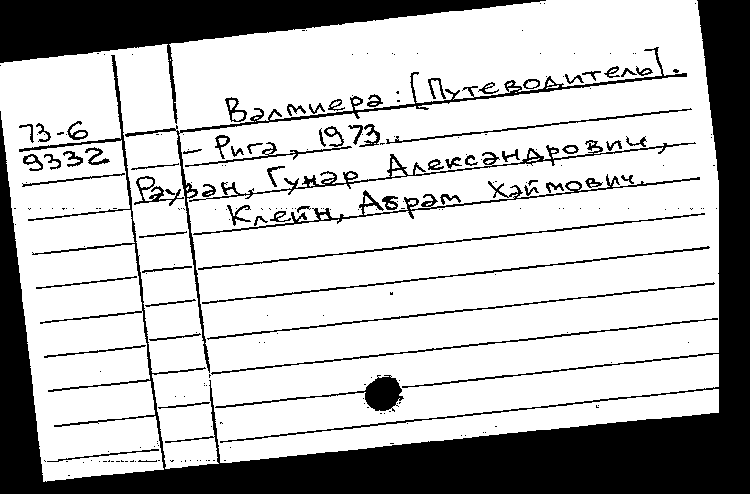 Валмиера: [Путеводитель].
73-6
9332
— Рига, 1973..
Раузан, Гунар Александрович,
Клейн, Абрам Хаймович.